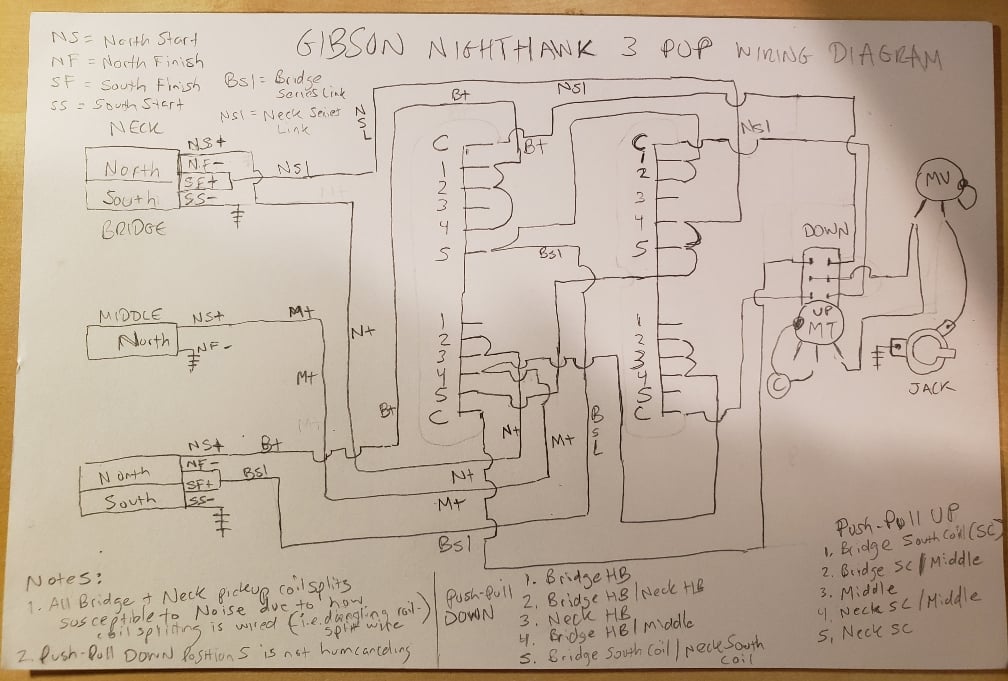 GIBSON NIGHTHAWK 3 PUP WIRING DIAGRAM
NS = North Start
NF = North Finish
SF = South Finish
SS = South Start
Bsl = Bridge
Series Link
Nsl = Neck Series
Link
NECK
North
South
NS+
NF-
SF+
SS-
BRIDGE
Nsl
NSL
B+
Nsl
Nsl
B+
C
1
2
3
4
5
C
1
2
3
4
5
Bsl
DOWN
UP
MT
MV
C
JACK
MIDDLE
North
NS+
NF-
M+
M+
N+
B+
1
2
3
4
5
C
1
2
3
4
5
C
N+
M+
BSL
North
South
NS+
NF-
SF+
SS-
B+
Bsl
N+
M+
Bsl
Notes:
1. All Bridge + Neck pickup coil splits
susceptible to Noise due to how
coil splitting is wired (i.e. dangling coil-)
split wire
2. Push-Pull DOWN Position 5 is not humcanceling
Push-Pull
DOWN
1. Bridge HB
2. Bridge HB/Neck HB
3. Neck HB
4. Bridge HB/Middle
5. Bridge South Coil/Neck South
Coil
Push-Pull UP
1. Bridge South Coil (SC)
2. Bridge SC/Middle
3. Middle
4. Neck SC/Middle
5. Neck SC